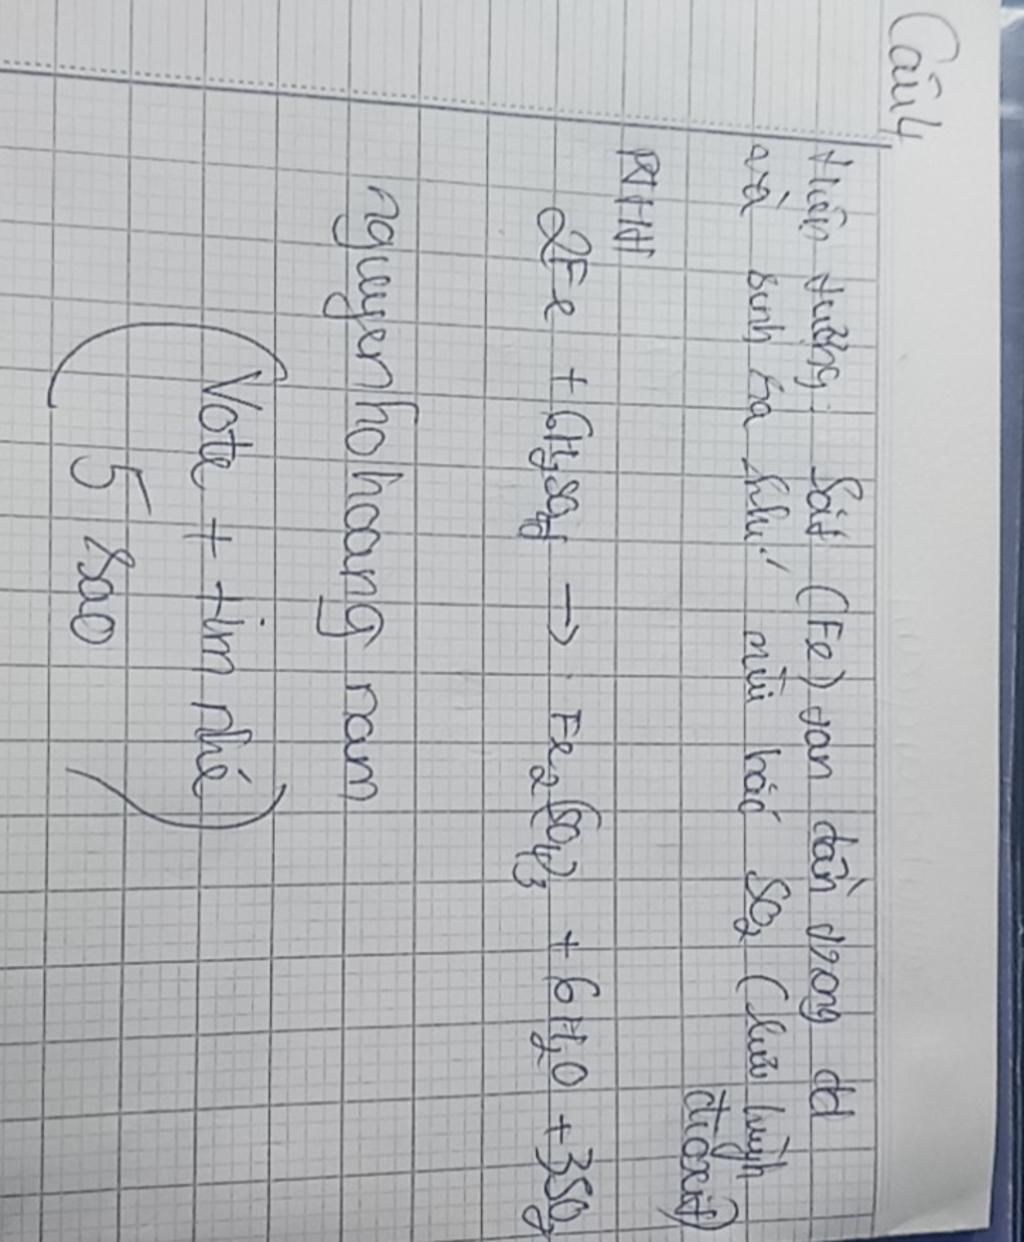 Câu 4
Hiện tượng: Sắt (Fe) tan dần trong dd
và sinh ra khí mùi hắc SO2 (lưu huỳnh
đioxit)
PTHH
2Fe + 6H2SO4đ → Fe2(SO4)3 + 6H2O + 3SO2
nguyen ho hoang nam
(Vote + tim nhé
5 sao)